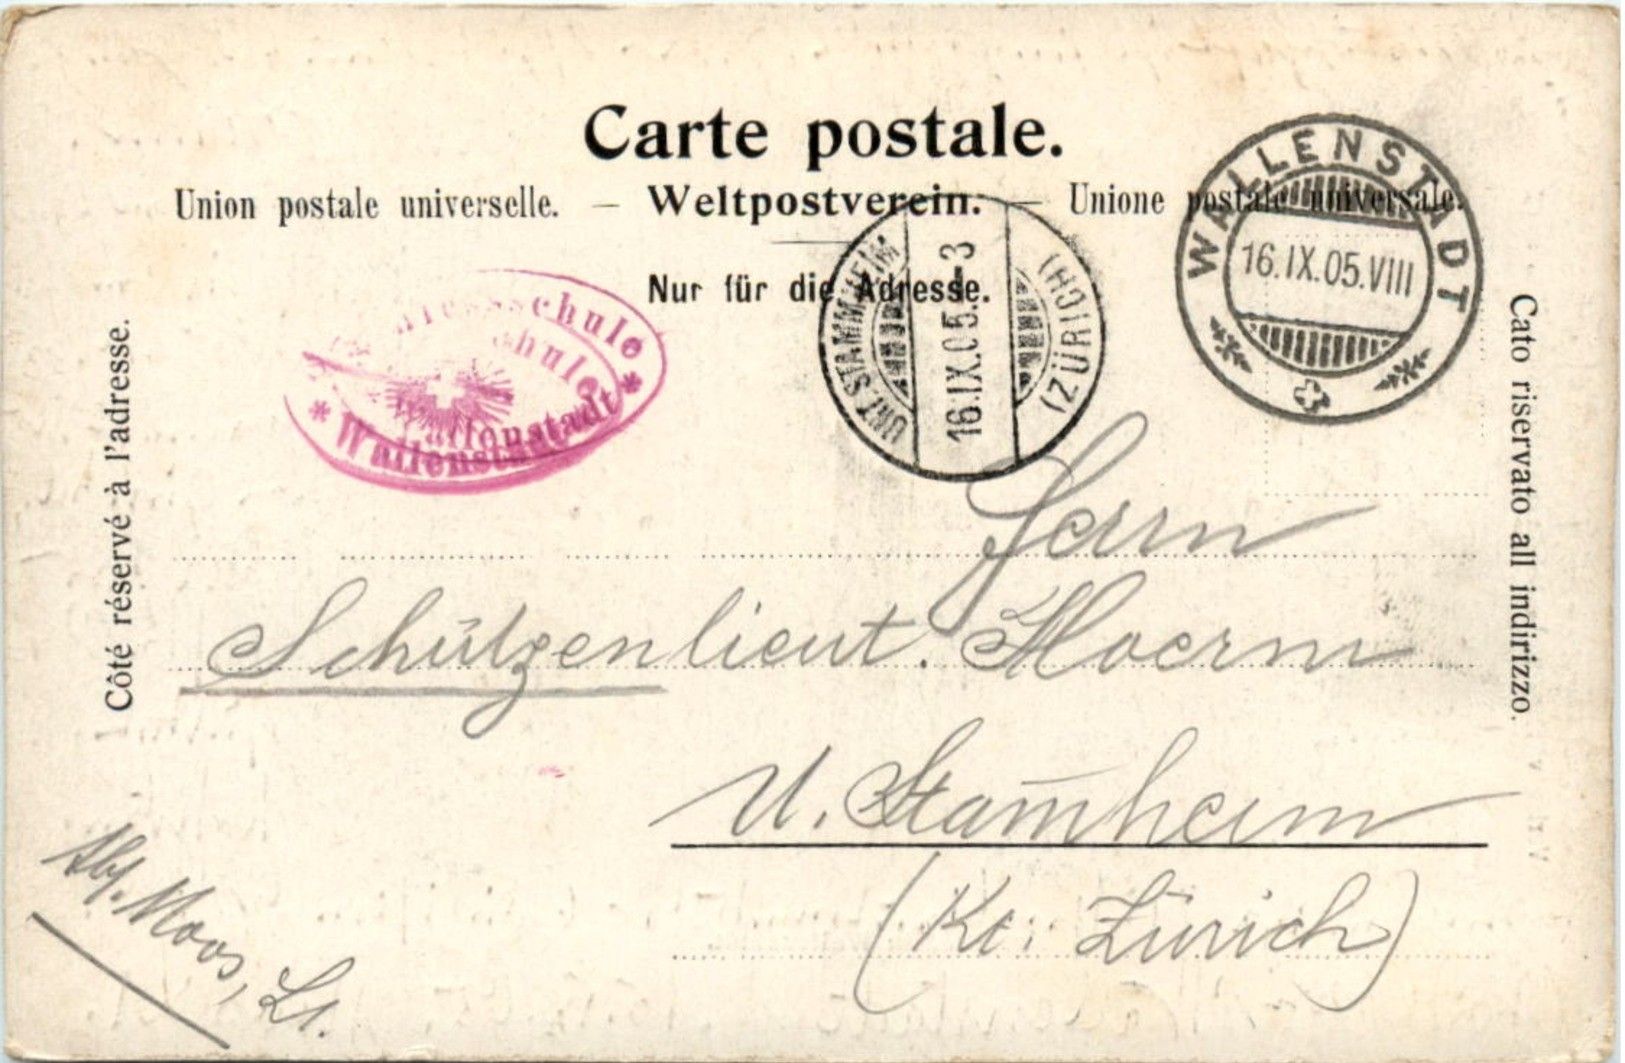 Carte postale.
Union postale universelle. — Weltpostverein. — Unione postale universale.
Nur für die Adresse.
WALLENSTADT
16.IX.05.VIII
UNT. STAMMHEIM
16.IX.05.-3
(ZÜRICH)
schule
* Wallenstadt *
Côté réservé à l'adresse.
Cato riservato all indirizzo.
Herrn
Schützenlieut. Hoerni
U. Stam̄heim
(Kt. Zürich)
Abs. Moos, Lt.